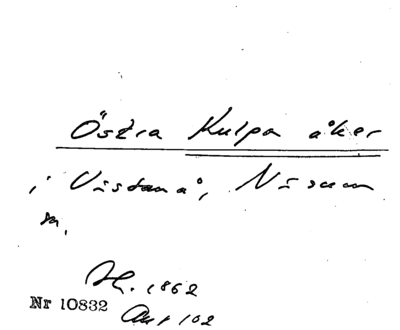 Östra Kulpa åker
i Västanå, Näsum
sn.
H. 1862
Nr 10832
Akt 102